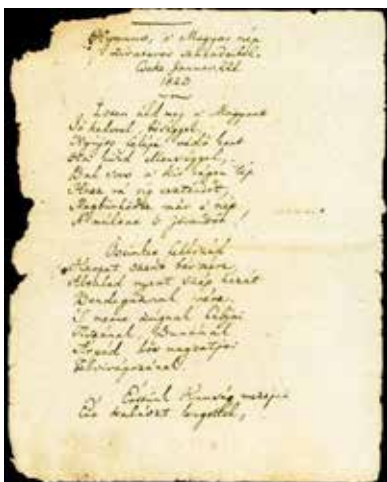 Hymnus, a' Magyar nép
zivataros századaiból.
Cseke Januar. 22d
1823
Isten áldd meg a' Magyart
Jó kedvvel, bőséggel,
Nyújts feléje védő kart
Ha küzd ellenséggel;
Bal sors a' kit régen tép
Hozz rá víg esztendőt,
Megbűnhődte már e' nép
A' múltat 's jövendőt!
Őseinket felhozád
Kárpát szent bérczére,
Általad nyert szép hazát
Bendegúznak vére.
'S merre zúgnak habjai
Tiszának, Dunának
Árpád hős magzatjai
Felvirágozának.
Értünk Kunság mezején
Ért kalászt lengettél,